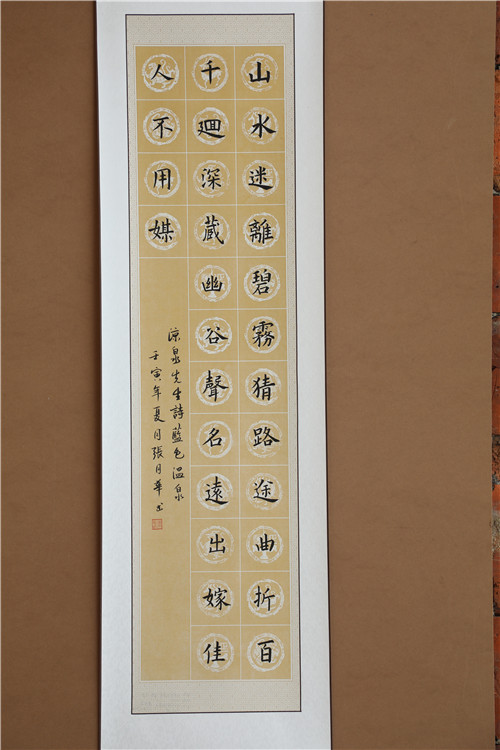 山水迷離碧霧猜路途曲折百
千迴深藏幽谷聲名遠出嫁佳
人不用媒
涼泉先生詩藍色温泉
壬寅年夏月張月華书